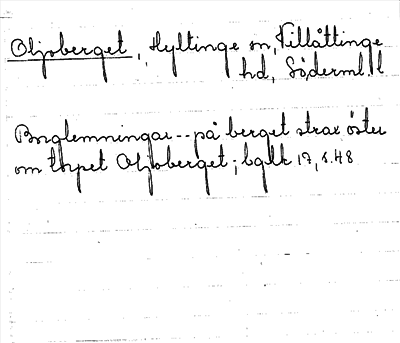 Oljoberget, Hyltinge sn, Villåttinge
hd, Söderml. l
Borglemningar -- på berget strax öster
om torpet Oljoberget; bglk 17, s. 48